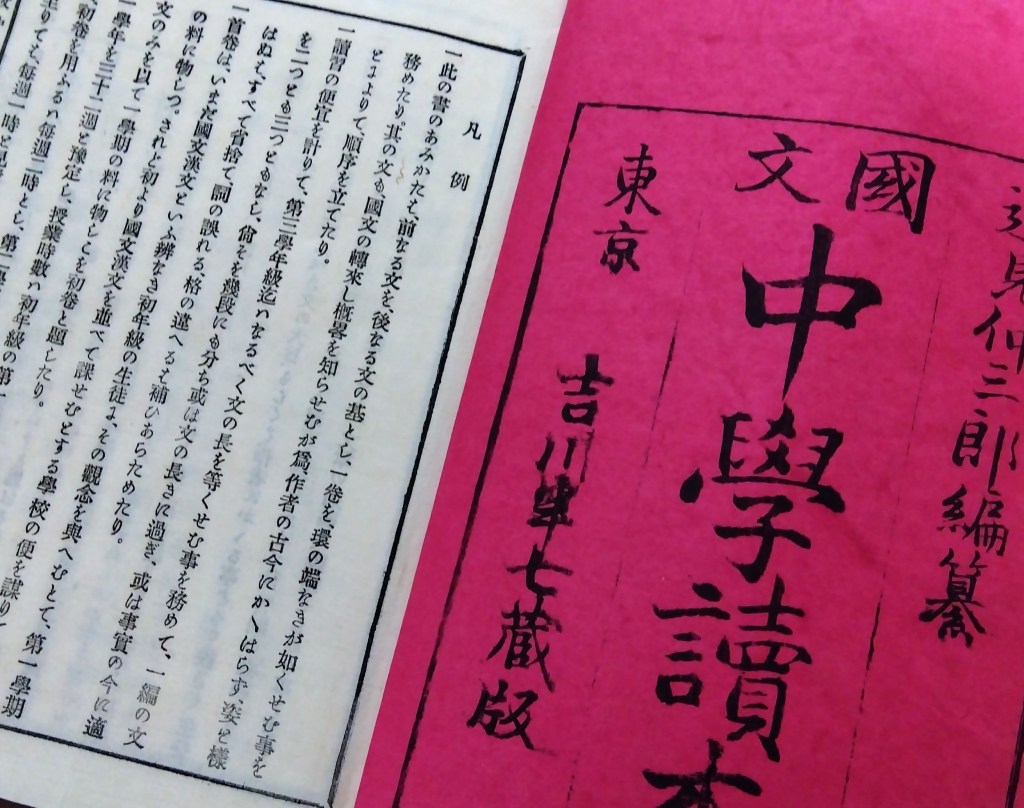 逸見仲三郎編纂
國文
中學讀本
東京
吉川半七藏版
凡例
一此の書のあみかたは、前なる文を、後なる文の基とし、一卷を、環の端なきが如くせむ事を
務めたり。其の文も、國文の轉來し概畧を知らせむが爲、作者の古今にかゝはらず、姿と樣
とによりて、順序を立てたり。
一讀習の便宜を計りて、第三學年級迄はなるべく文の長を等くせむ事を務めて、一編の文
を二つとも三つともなし、尙そを幾段にも分ち或は文の長さに過ぎ、或は事實の今に適
はぬは、すべて省捨て、詞の誤れる、格の違へるは補ひあらためたり。
一首卷は、いまだ國文漢文といふ辨なき初年級の生徒に、その觀念を與へむとて、第一學期
の料に物しつ。されど初より國文漢文を並べて課せむとする學校の便を謀り
文のみを以て一學期の料に物しこを初卷と題したり。
一學年を三十二週と豫定し、授業時數は初年級の第一
初卷を用ふるは每週二時とし、第二學
至りても、每週一時と